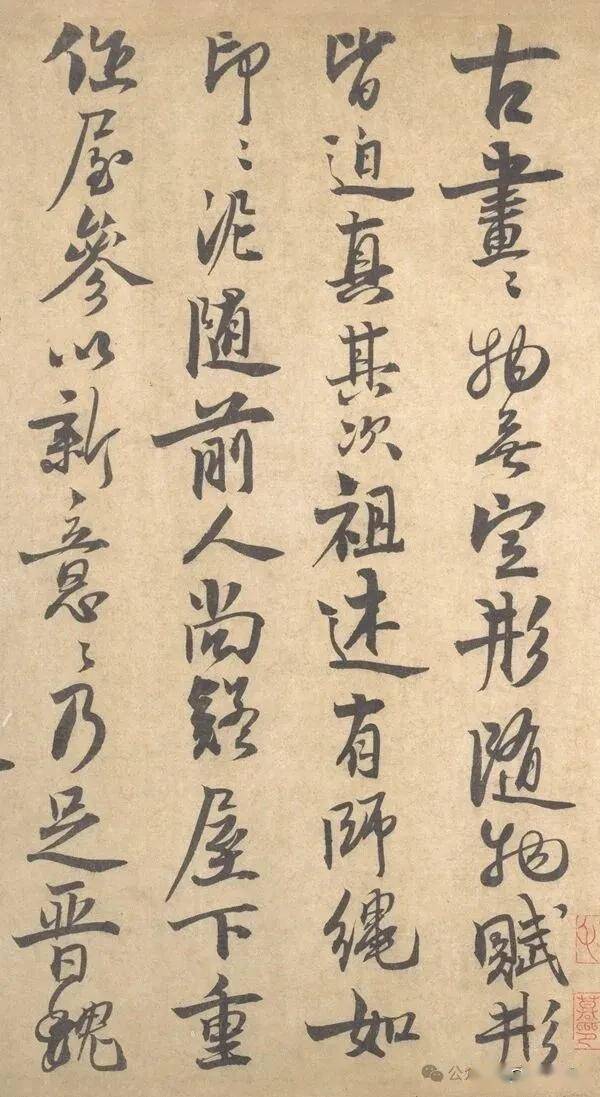 古畫〻物無定形隨物賦形
皆迫真其次祖述有師繩如
印〻泥隨前人尚疑屋下重
作屋參以新意〻乃足晉魏